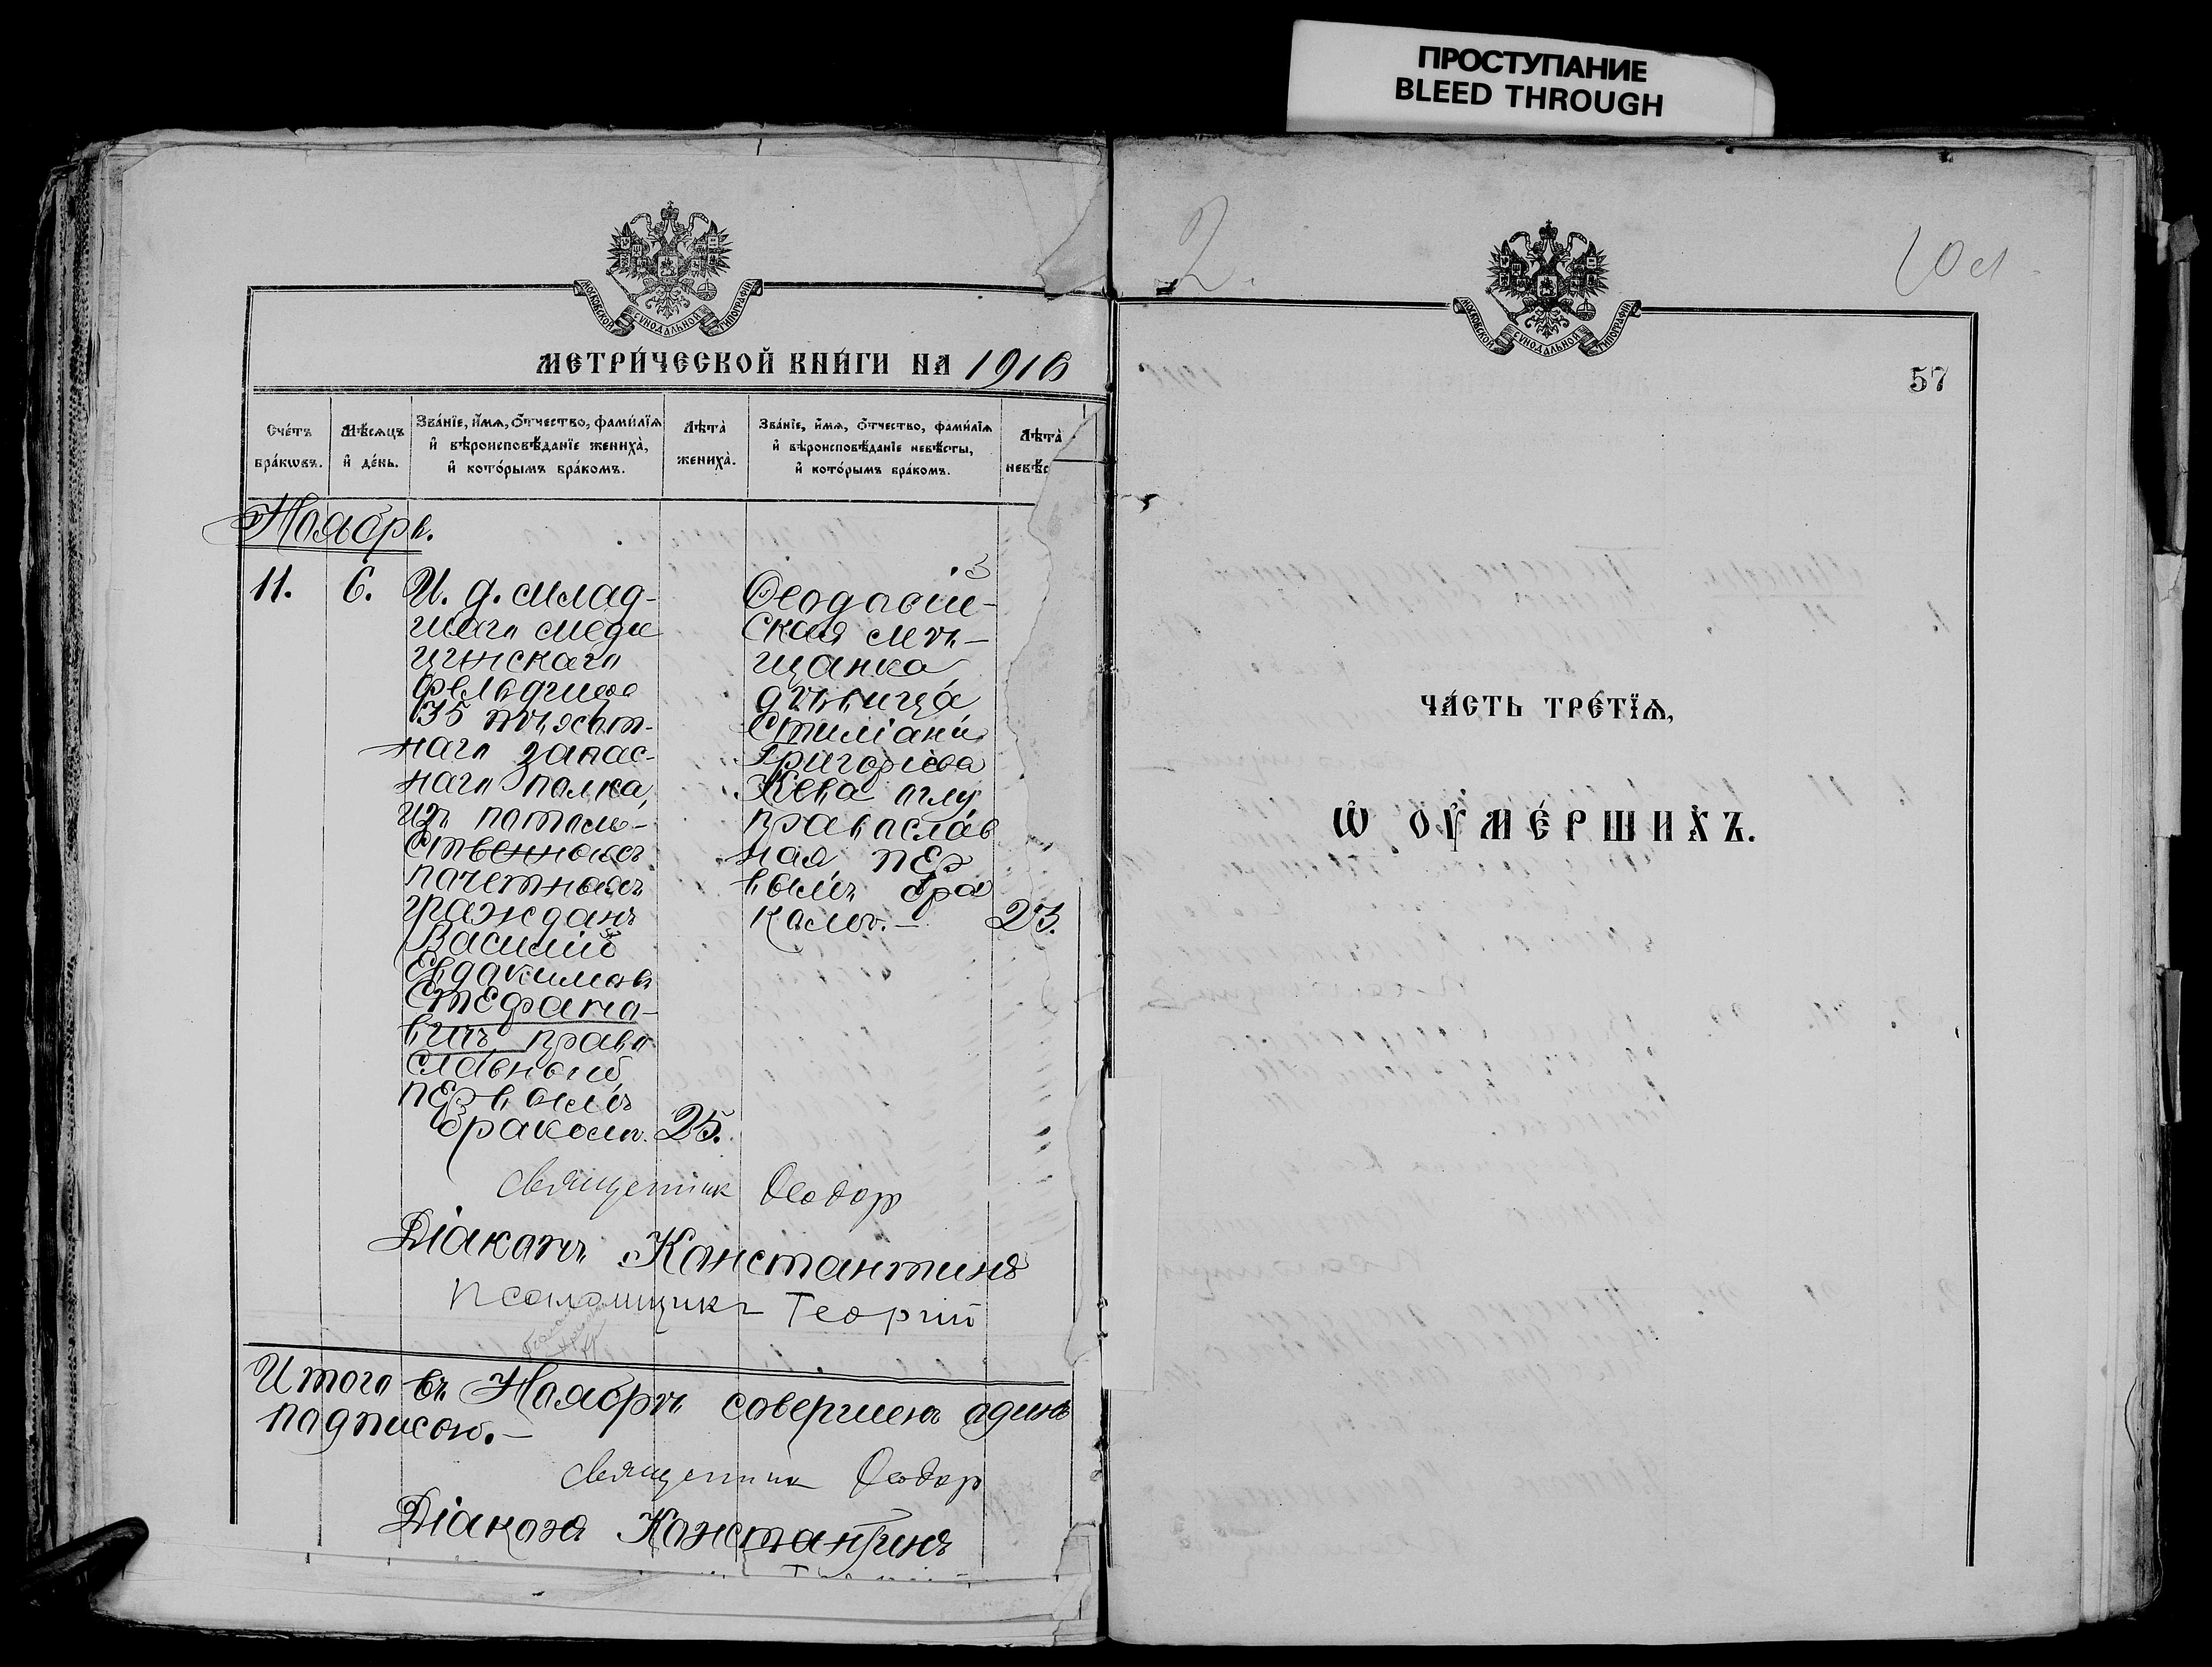 ПРОСТУПАНИЕ
BLEED THROUGH
МОСКОВСКОЙ СУНОДАЛЬНОЙ ТИПОГРАФІИ
МЕТРИ́ЧЕСКОЙ КНИ́ГИ НА 1916
Сче́тъ бра́кѡвъ.
Мѣ́сяцъ и҆ де́нь.
Зва́нїе, и҆́мѧ, ѻ҆́тчество, фами́лїѧ и҆ вѣроисповѣ́данїе жениха̀, и҆ кото́рымъ бра́комъ.
Лѣта̀ жениха̀.
Зва́нїе, и҆́мѧ, ѻ҆́тчество, фами́лїѧ и҆ вѣроисповѣ́данїе невѣ́сты, и҆ кото́рымъ бра́комъ.
Лѣта̀ невѣ́с
Ноябрь.
11.
6.
И. д. млад-
шаго меди
цинскаго
фельдшера
35 пѣхот-
наго запас-
наго полка,
изъ потом-
ственныхъ
почетныхъ
гражданъ
Василій
Евдокимовъ
Стефано-
вичъ право
славный,
первымъ
бракомъ.
25.
Ѳеодосій-
ская мѣ-
щанка
дѣвица
Стиліани
Григоріева
Кева оглу,
православ
ная пер
вымъ бра
комъ.-
23.
Священник Ѳеодор
Діаконъ Константинъ
Псаломщикъ Георгій
Итого въ Ноябрѣ совершенъ одинъ
подписью.-
Священник Ѳеодор
Діаконъ Константинъ
2.
МОСКОВСКОЙ СУНОДАЛЬНОЙ ТИПОГРАФІИ
57
ЧА́СТЬ ТРЕ́ТЇѦ,
Ѡ҆ ОУ҆МЕ́РШИХЪ.